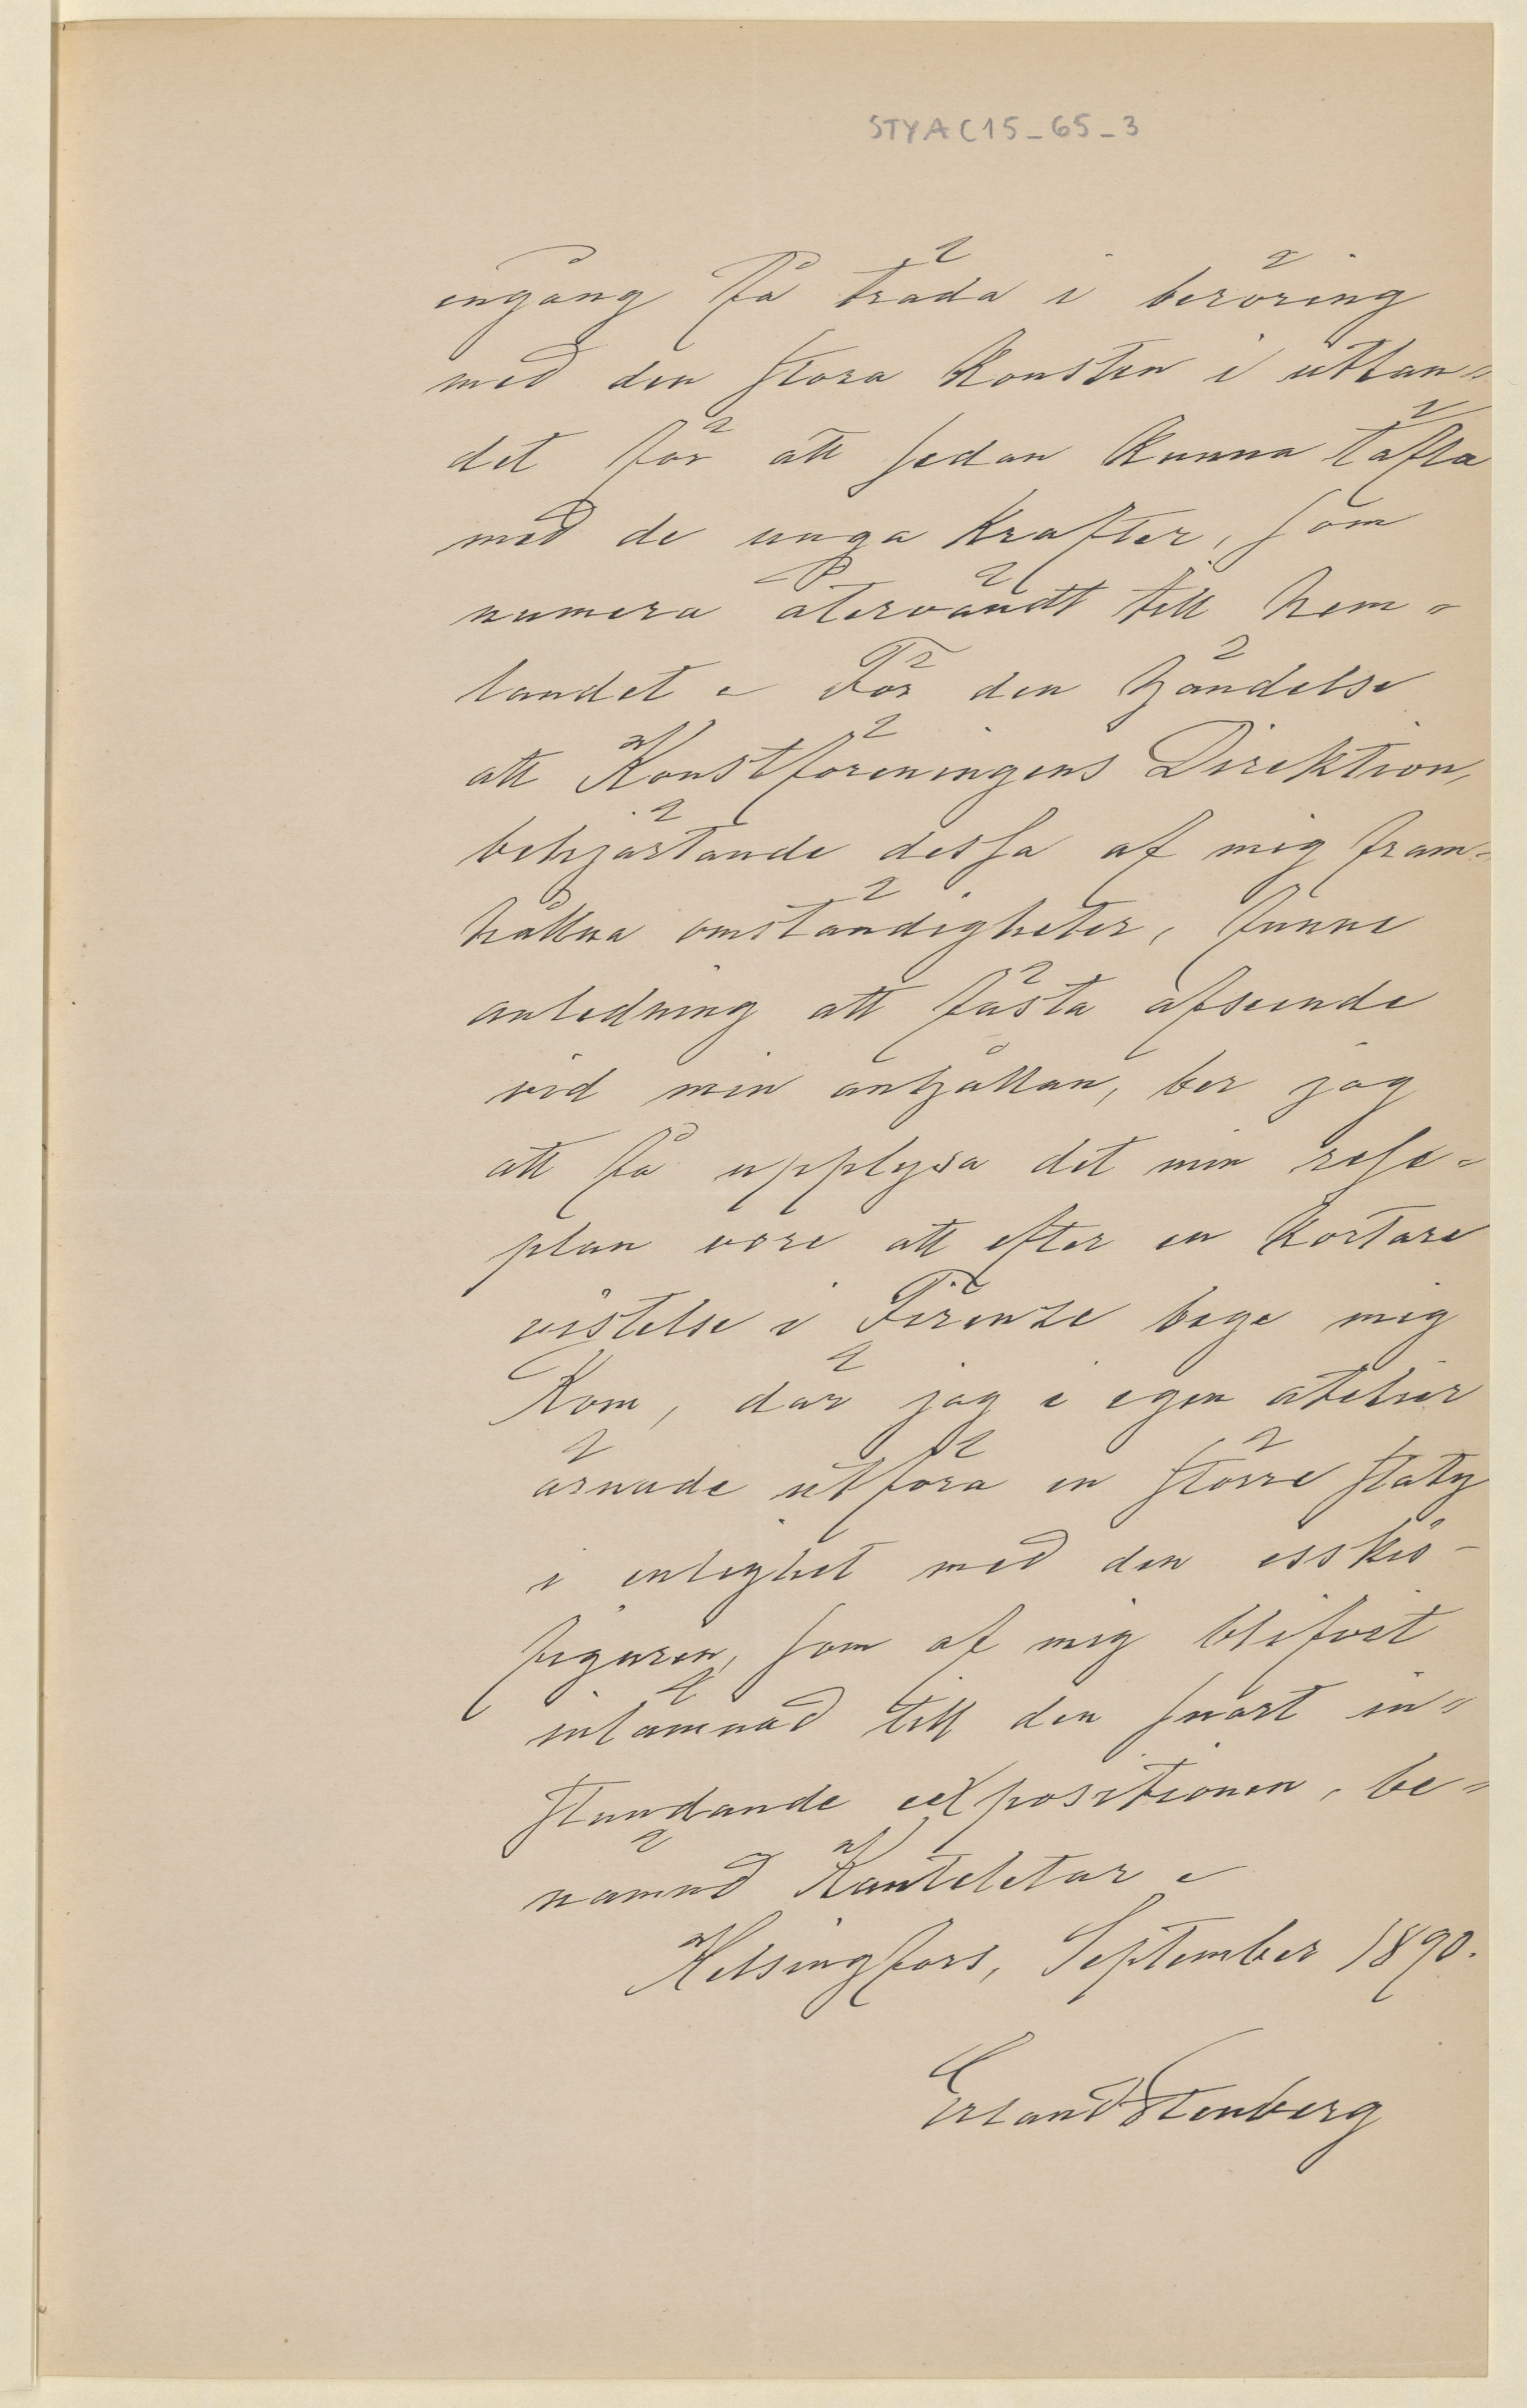 STYA C15_65_3
engång få träda i beröring
med den stora konsten i utlan-
det för att sedan kunna täfla
med de unga krafter, som
numera återvändt till hem-
landet. För den händelse
att Konstföreningens Direktion,
behjärtande dessa af mig fram-
hållna omständigheter, funne
anledning att fästa afseende
vid min anhållan, ber jag
att få upplysa det min rese-
plan vore att efter en kortare
vistelse i Firenze bege mig
Rom, där jag i egen atelier
ärnade utföra en större staty
i enlighet med den esskis-
figuren, som af mig blifvit
inlämnad till den snart in-
stundande expositionen, be-
nämnd Kanteletar.
Helsingfors, September 1890.
Erland Stenberg